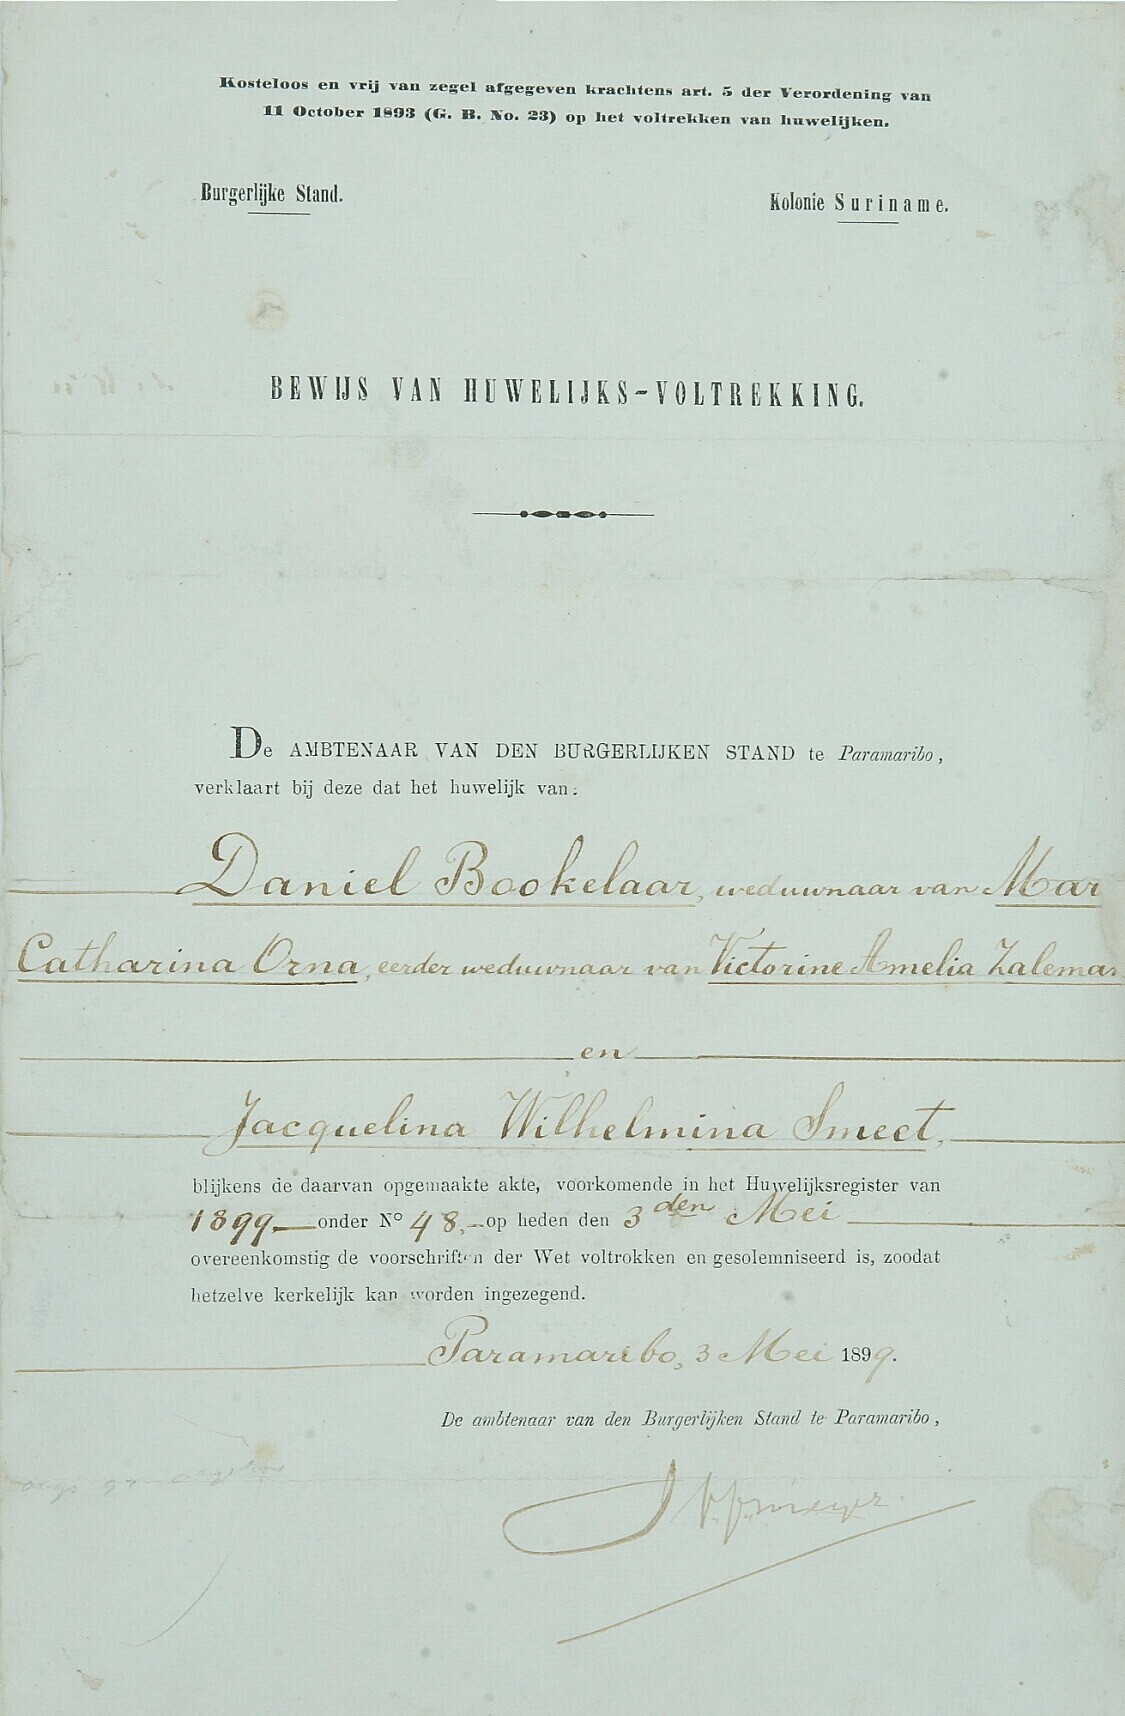 Kosteloos en vrij van zegel afgegeven krachtens art. 5 der Verordening van
11 October 1893 (G. B. No. 23) op het voltrekken van huwelijken.
Burgerlijke Stand.
Kolonie Suriname.
BEWIJS VAN HUWELIJKS-VOLTREKKING.
De AMBTENAAR VAN DEN BURGERLIJKEN STAND te Paramaribo,
verklaart bij deze dat het huwelijk van:
Daniel Bookelaar, weduwnaar van Mar
Catharina Orna, eerder weduwnaar van Victorine Amelia Zaleman
en
Jacquelina Wilhelmina Smeet,
blijkens de daarvan opgemaakte akte, voorkomende in het Huwelijksregister van
1899 onder No 48, op heden den 3den Mei
overeenkomstig de voorschriften der Wet voltrokken en gesolemniseerd is, zoodat
hetzelve kerkelijk kan worden ingezegend.
Paramaribo, 3 Mei 1899.
De ambtenaar van den Burgerlijken Stand te Paramaribo,